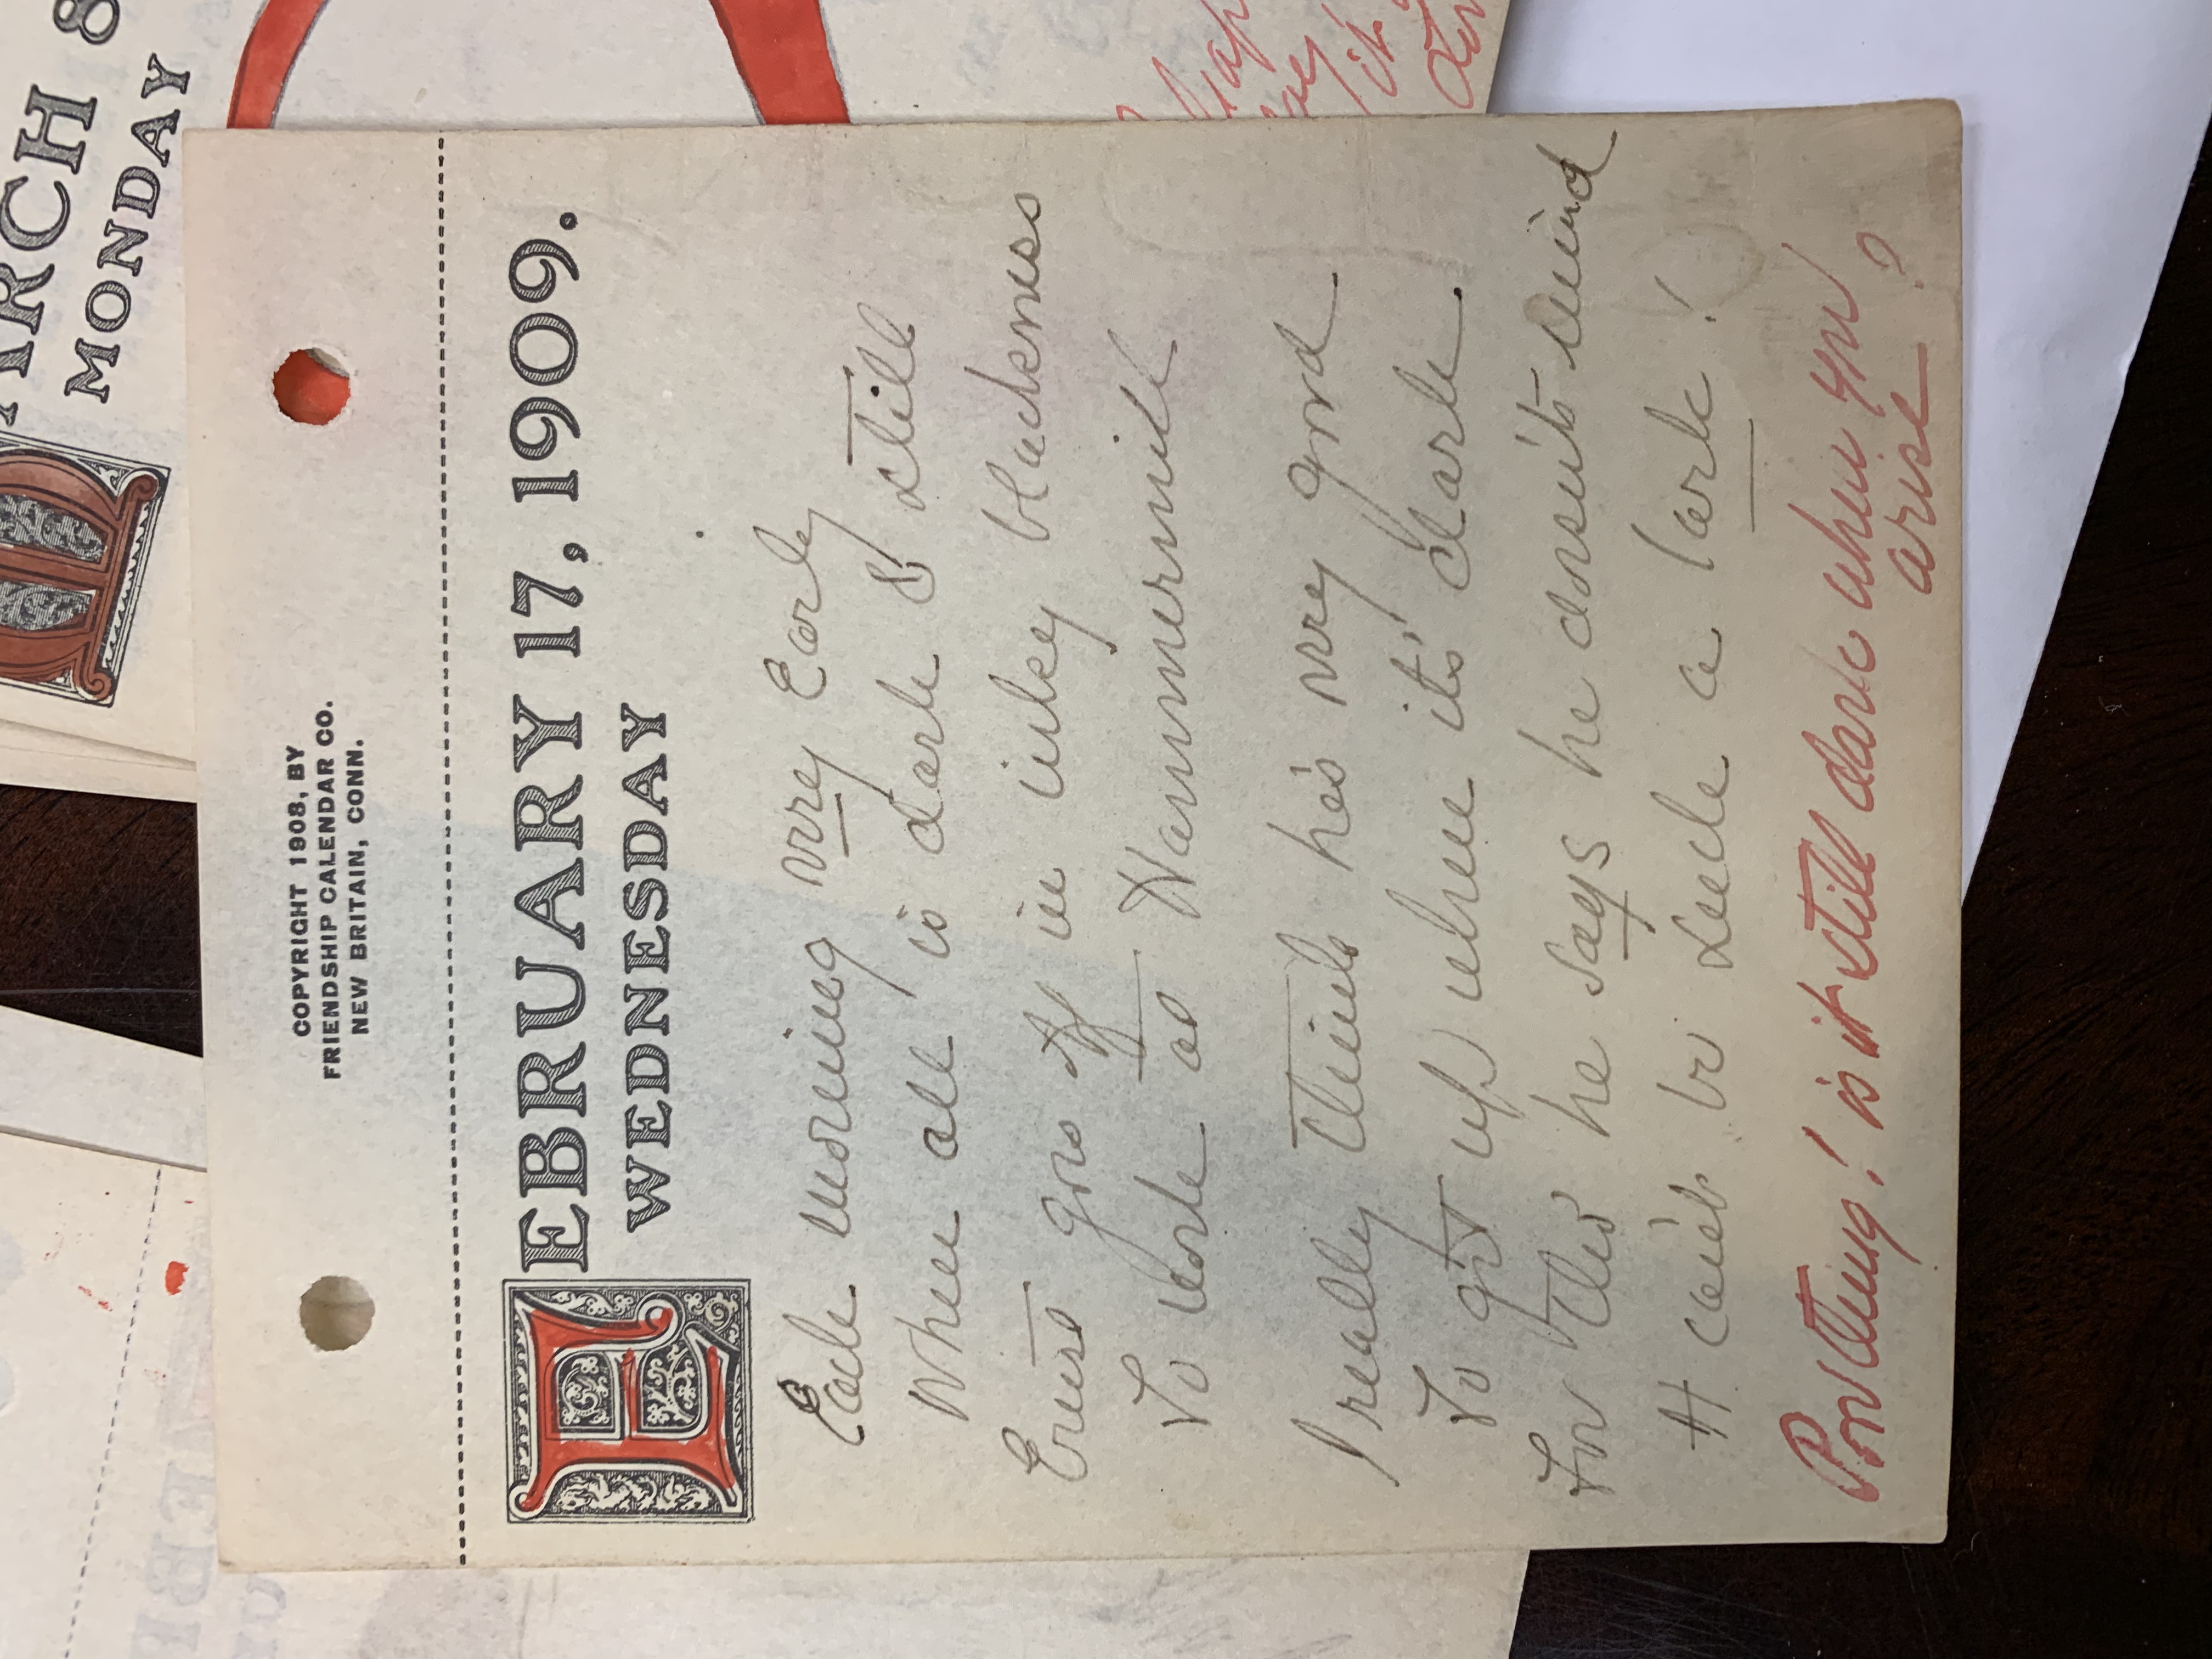 MARCH 8
MONDAY
COPYRIGHT 1908, BY
FRIENDSHIP CALENDAR CO.
NEW BRITAIN, CONN.
FEBRUARY 17, 1909.
WEDNESDAY
Each morning very Early
When all is dark & still
Ernest goes off in inky blackness
To work at Hammermill
I really think he's very good
To get up when it's dark.
For tho' he says he doesn't mind
It can't be such a lark!
Poor thing! is it still dark when you
arise?
it